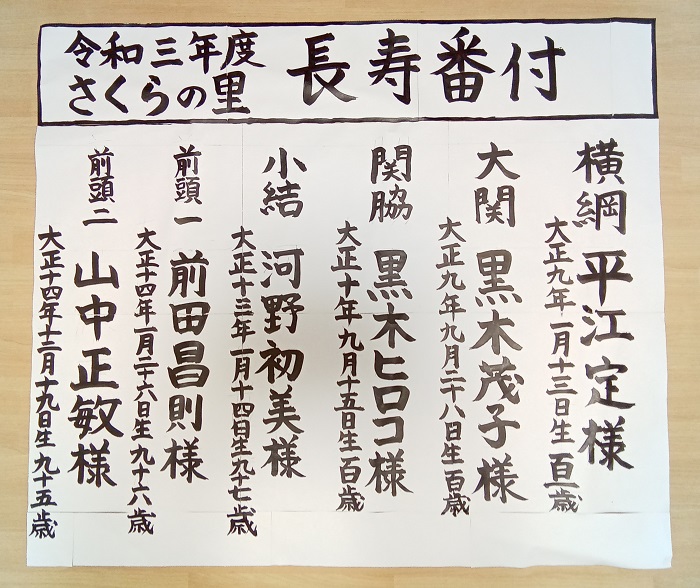 令和三年度
さくらの里
長寿番付
横綱 平江定様
大正九年一月十三日生 百一歳
大関 黒木茂子様
大正九年九月二十八日生 百歳
関脇 黒木ヒロコ様
大正十年九月十五日生 百歳
小結 河野初美様
大正十三年一月十四日生 九十七歳
前頭一 前田昌則様
大正十四年一月二十六日生 九十六歳
前頭二 山中正敏様
大正十四年十二月十九日生 九十五歳